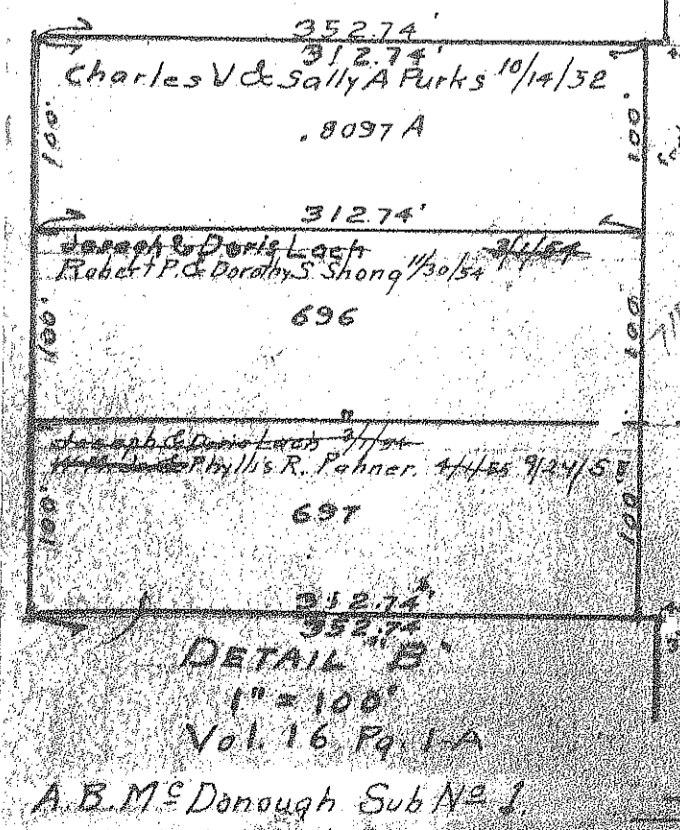 352.74'
312.74'
Charles V & Sally A Purks 10/14/52
100'
.8097 A
100'
312.74'
Joseph & Doris Lach 3/1/54
Robert P. & Dorothy S Shong 11/30/54
100'
696
100
"
Joseph & Doris Lach 3/1/54
Phyllis R. Pahner. 4/1/55 9/24/5
100'
697
100'
312.74'
352.74
DETAIL "B"
1" = 100'
Vol. 16 Pg. 1-A
A.B. McDonough Sub No 1.